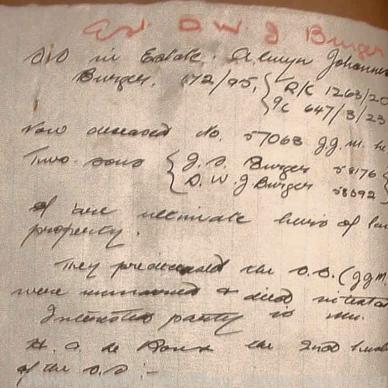 Est. D. W. J Burger
S/D in Estate. Alwyn Johannes
Burger, 172/95, { R/C 1263/20
647/3/23
Now deceased No. 57063 gg. m. h
Two sons { J. S. Burger 58176
D. W. J Burger 58592
of are ultimate heirs of
property.
They predeceased the S.S. (gg m.
were unmarried & died intestate
Interested party is Mr.
H. A. de the 2nd
of the S.S :-